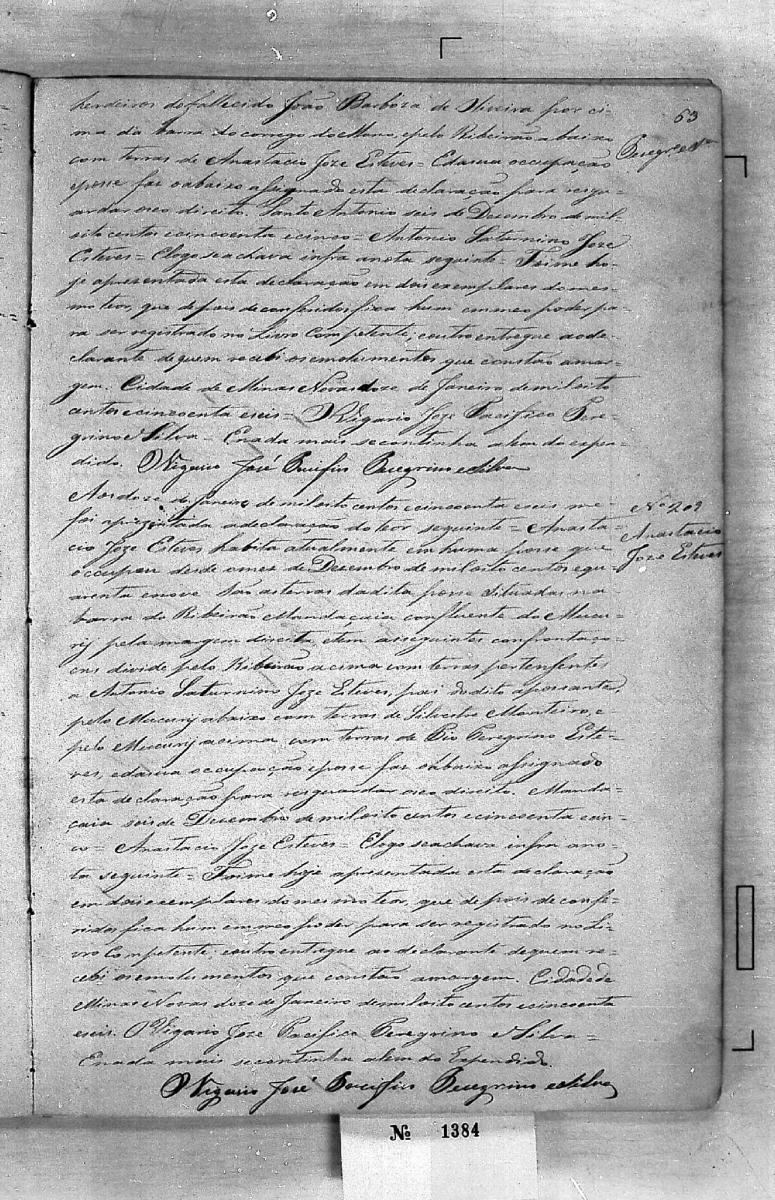 53
Peregr.º e S.ª
herdeiros do fallecido João Barboza de Oliveira por ci-
ma da barra do corrego do Mono, e pelo Ribeirão abaixo
com terras de Anastacio Joze Esteves = E da sua occupação
e posse faz o abaixo assignado esta declaração para resgu-
ardar o seo direito. Santo Antonio seis de Desembro de mil
oito centos e cincoenta e cinco = Antonio Saturnino Joze
Esteves = E logo se achava infra a nota seguinte = Foi me ho-
je apresentada esta declaração em dois exemplares do mes-
mo teor, que depois de conferidos fica hum em meo poder pa-
ra ser registrado no Livro Competente, e outro entregue ao de-
clarante de quem recebi os emolumentos que constão a mar-
gem. Cidade de Minas Novas doze de Janeiro de mil oito
centos e cincoenta e seis = O Vigario Joze Pacifico Pere-
grino e Silva = E nada mais se continha alem do expen-
dido. O Vigario José Pacifico Peregrino e Silva
Nº 209
Anastacio
Joze Esteves
Aos doze de Janeiro de mil oito centos e cincoenta e seis me
foi aprezentada a declaração do teor seguinte = Anasta-
cio Joze Esteves habita atualmente em huma posse que
occupou desde o mez de Desembro de mil oito centos e qu-
arenta e nove São as terras da dita posse situadas na
barra do Ribeirão Mandaçaia confluente do Mucu-
ry pela margem direita, e tem as seguintes confrontaço-
ens divide pelo Ribeirão acima com terras pertensentes
a Antonio Saturnino Joze Esteves, pai do dito apossante,
pelo Mucury abaixo com terras de Silvestre Monteiro, e
pelo Mucury acima com terras de Pio Peregrino Este-
ves, e da sua occupação e posse faz o abaixo assignado
esta declaração para resguardar o seo direito. Manda-
çaia seis de Desembro de mil oito centos e cincoenta e cin-
co = Anastacio Joze Esteves = E logo se achava infra a no-
ta seguinte = Foi me hoje apresentada esta declaração
em dois exemplares do mesmo teor, que depois de confe-
ridos fica hum em meo poder para ser registrado no Li-
vro Competente, e outro entregue ao declarante de quem re-
cebi os emolumentos que constão a margem. Cidade de
Minas Novas doze de Janeiro de mil oito centos e cincoenta
e seis. O Vigario José Pacifico Peregrino e Silva =
E nada mais se continha alem do Expendido.
O Vigario José Pacifico Peregrino e Silva
Nº 1384